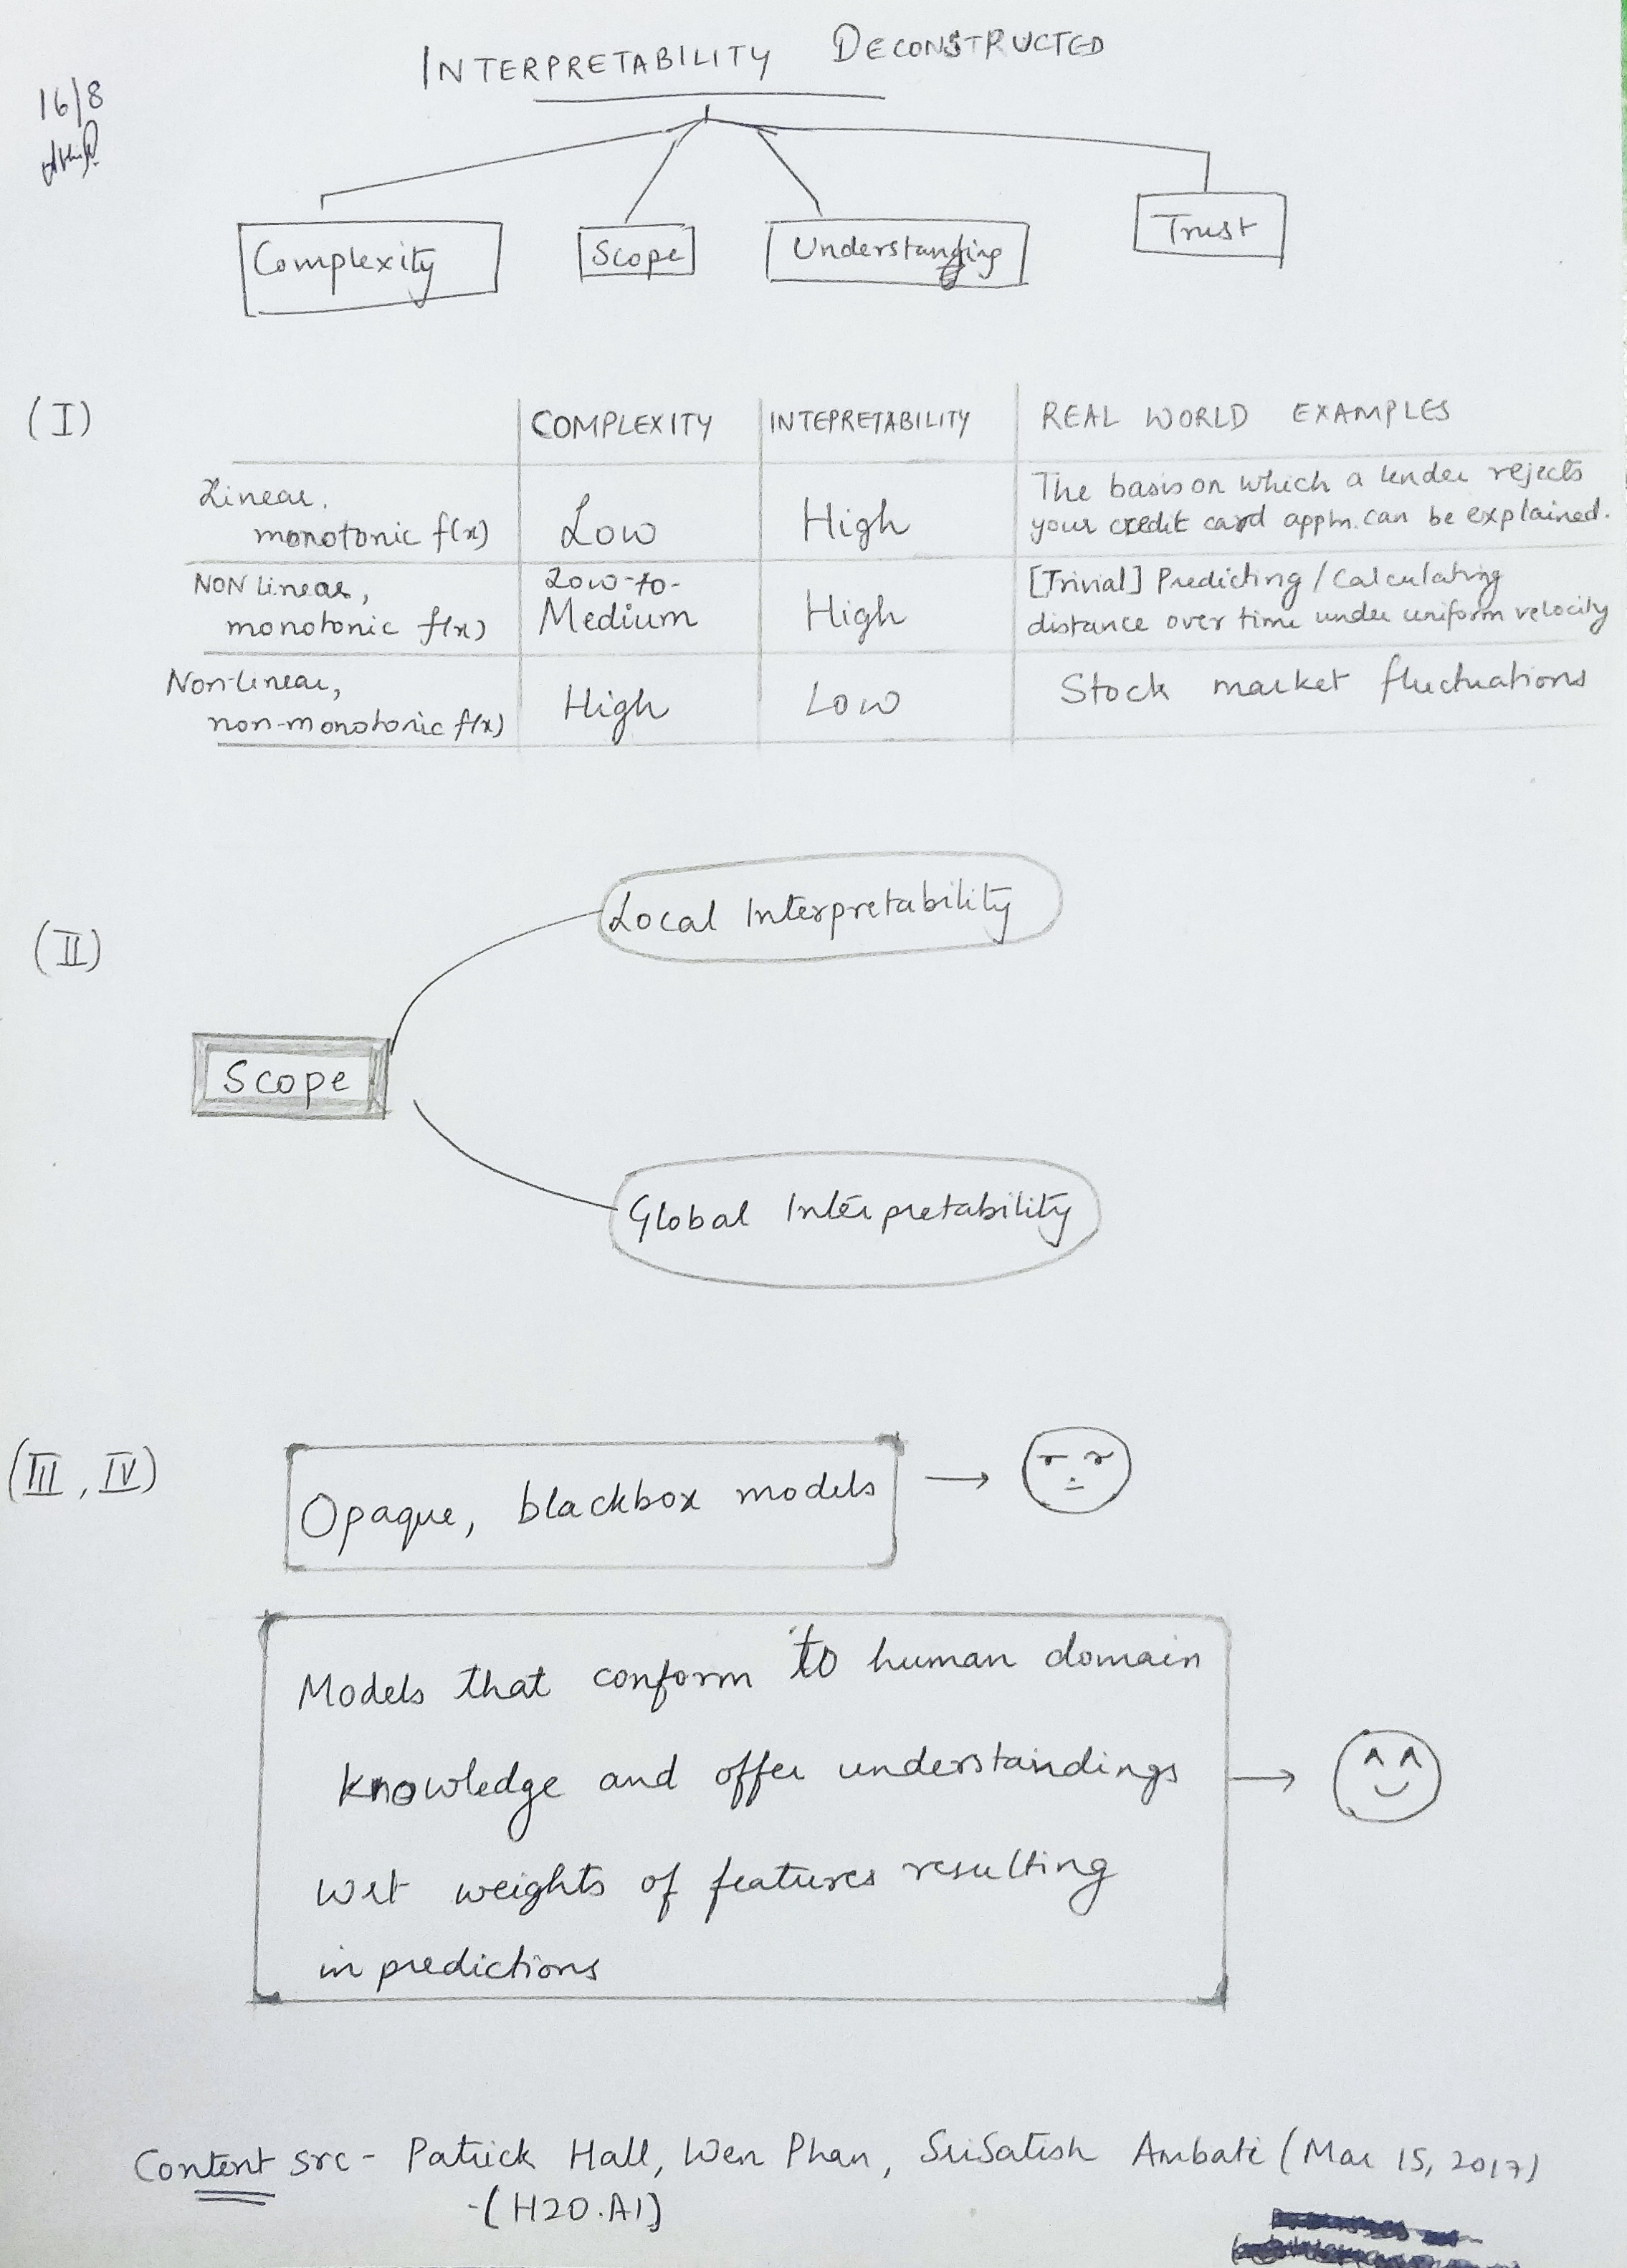 INTERPRETABILITY DECONSTRUCTED
16/8
Complexity
Scope
Understanding
Trust
(I)
COMPLEXITY INTEPRETABILITY REAL WORLD EXAMPLES
Linear,
monotonic f(x)
Low
High
The basis on which a lender rejects
your credit card appln. can be explained.
NON linear,
monotonic f(x)
Low-to-
Medium
High
[Trivial] Predicting/Calculating
distance over time under uniform velocity
Non-linear,
non-monotonic f(x)
High
Low
Stock market fluctuations
(II)
Local Interpretability
Scope
Global Interpretability
(III, IV)
Opaque, blackbox models
Models that conform to human domain
knowledge and offer understandings
wrt weights of features resulting
in predictions
Content src - Patrick Hall, Wen Phan, SriSatish Ambati (Mar 15, 2017)
-(H2O.AI)